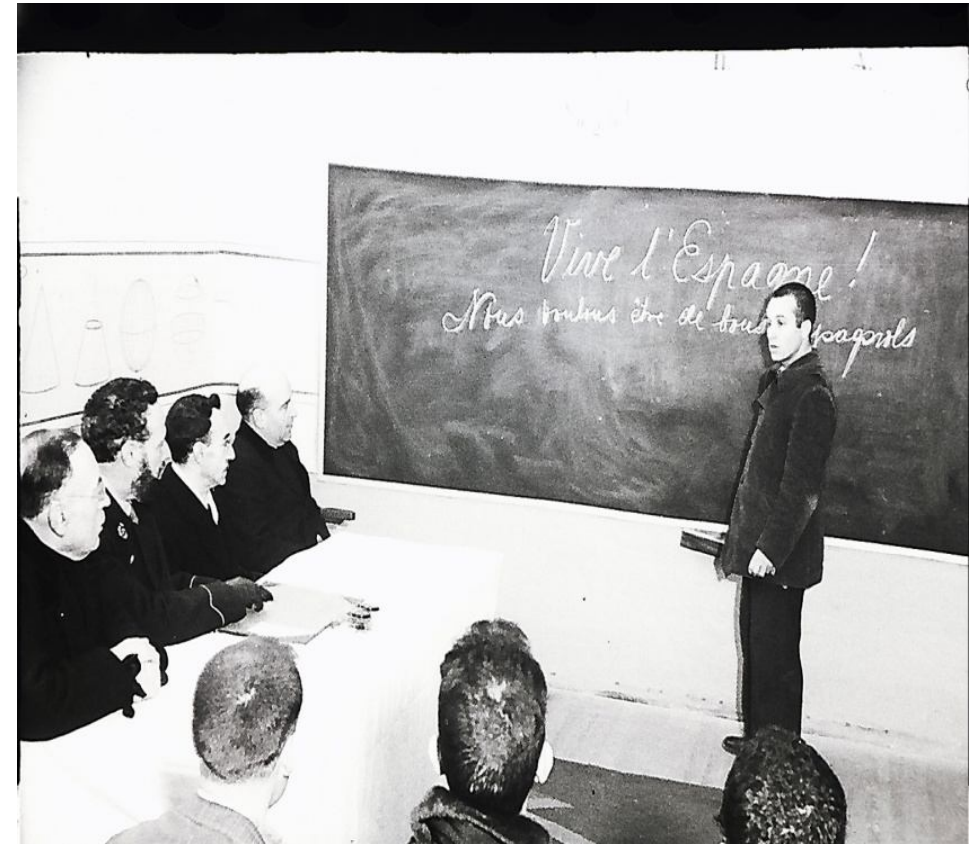 Vive l'Espagne!
Nous voulons être de bons spagnols